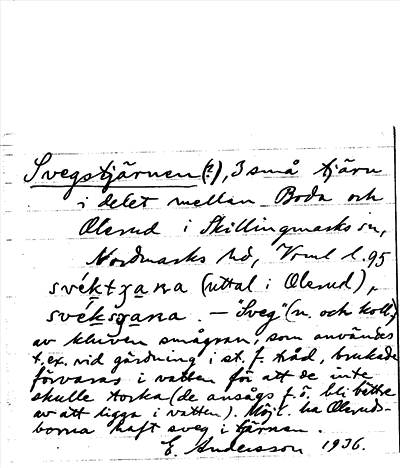 Svegstjärnen (?), 3 små tjärn
i delet mellan Boda och
Olerud i Skillingmarks sn,
Nordmarks hd, Vrml l. 95
(uttal i Olerud),
. — "Sveg" (n. och koll.)
av kluven smågran, som användes
t.ex. vid gärdning i st. f. tråd, brukade
förvaras i vatten för att de inte
skulle torka (de ansågs f.ö. bli bättre
av att ligga i vatten). Möjl. ha Oleruds-
borna haft sveg i tjärnen.
E. Andersson 1936.